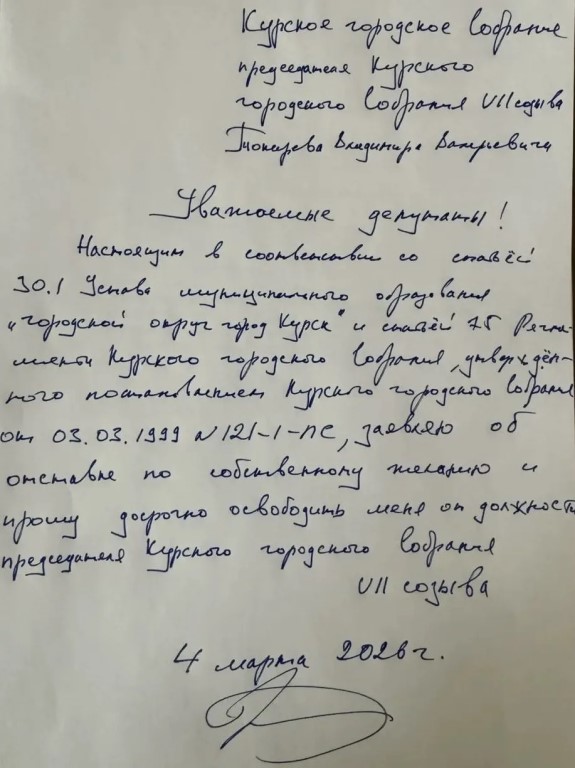 Курское городское Собрание
председателя Курского
городского Собрания VII созыва
Токарева Владимира Валерьевича
Уважаемые депутаты!
Настоящим в соответствии со статьёй
30.1 Устава муниципального образования
"Городской округ город Курск" и статьёй 75 Регла-
мента Курского городского Собрания, утверждён-
ного постановлением Курского городского Собрания
от 03.03.1999 N 121-1-ПС, заявляю об
отставке по собственному желанию и
прошу досрочно освободить меня от должности
председателя Курского городского Собрания
VII созыва
4 марта 2026 г.